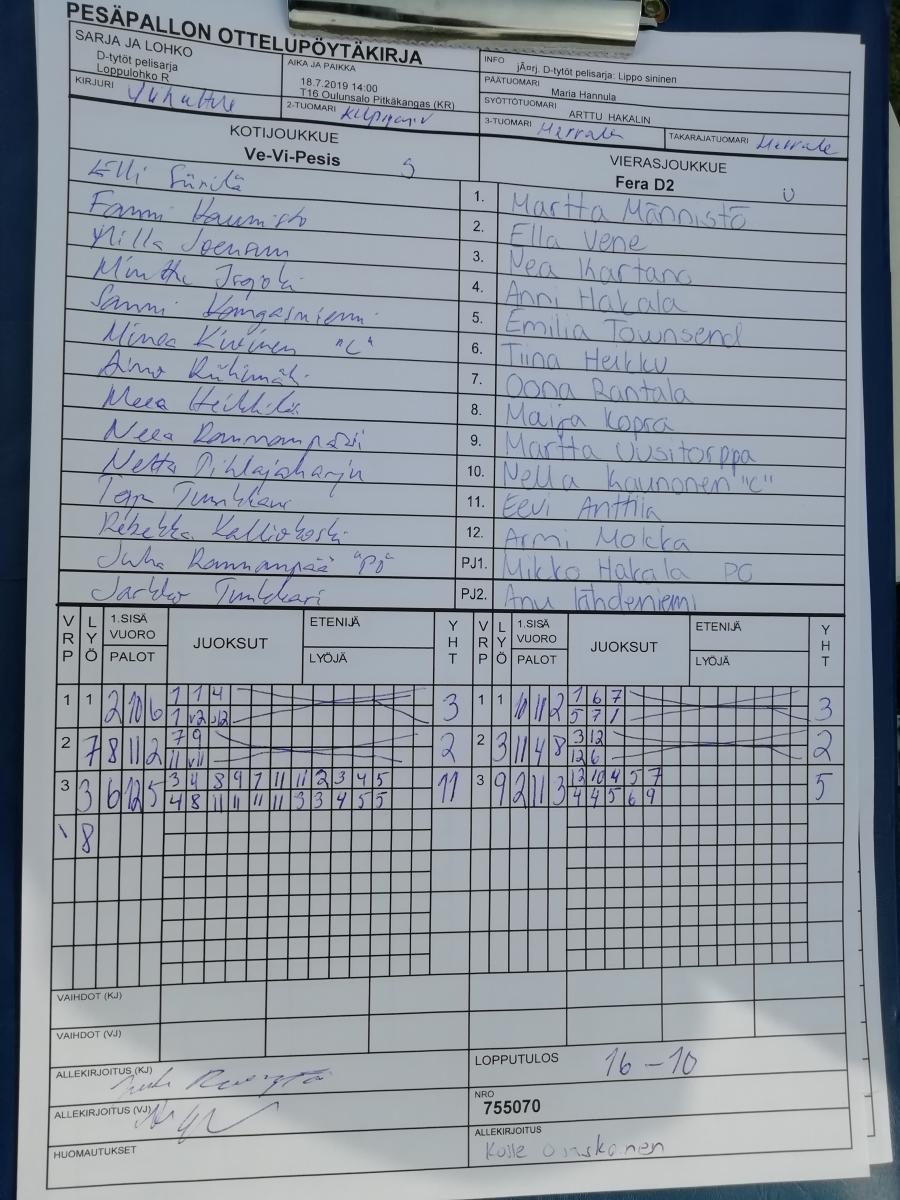 PESÄPALLON OTTELUPÖYTÄKIRJA
SARJA JA LOHKO
D-tytöt pelisarja
Loppulohko R
KIRJURI
AIKA JA PAIKKA
18.7.2019 14:00
T16 Oulunsalo Pitkäkangas (KR)
2-TUOMARI
INFO jÄorj. D-tytöt pelisarja: Lippo sininen
PÄÄTUOMARI Maria Hannula
SYÖTTÖTUOMARI ARTTU HAKALIN
3-TUOMARI
TAKARAJATUOMARI
KOTIJOUKKUE
Ve-Vi-Pesis
VIERASJOUKKUE
Fera D2 U
Elli 1. Martta Männistö
Fanni 2. Ella Vene
Milla Joensuu 3. Nea Kartano
4. Anni Hakala
Sanni Kangasniemi 5. Emilia Townsend
Minea Kivinen "C" 6. Tiina Heikku
Aino Riihimäki 7. Oona Rantala
Meea Heikkilä 8. Maija Kopra
Neea Rannanpää 9. Martta Uusitorppa
Netta Pihlajaharju 10. Nella Kaunonen "C"
Tunkkari 11. Eevi Anttila
Rebekka Kalliokoski 12. Armi Mokka
Juha Rannanpää "PÖ" PJ1. Mikko Hakala
Jarkko Tunkkari PJ2. Anu Lähdeniemi
VRP LYÖ 1.SISÄ VUORO PALOT JUOKSUT ETENIJÄ LYÖJÄ YHT VRP LYÖ 1.SISÄ VUORO PALOT JUOKSUT ETENIJÄ LYÖJÄ YHT
1 1 2 10 6 1 1 4 3 1 1 10 11 2 1 6 7 3
1 v2 v12 5 7 1
2 7 8 11 2 7 9 2 2 3 11 4 8 3 12 2
11 v11 12 6
3 3 6 12 5 3 4 8 9 7 11 11 2 3 4 5 11 3 9 2 11 3 12 10 4 5 7 5
4 8 11 11 11 11 3 3 4 5 5 4 4 5 6 9
8
VAIHDOT (KJ)
VAIHDOT (VJ)
ALLEKIRJOITUS (KJ)
ALLEKIRJOITUS (VJ)
HUOMAUTUKSET
LOPPUTULOS 16-10
NRO
755070
ALLEKIRJOITUS